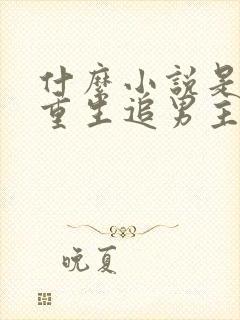 什麼小說是
重生追男主
晚夏